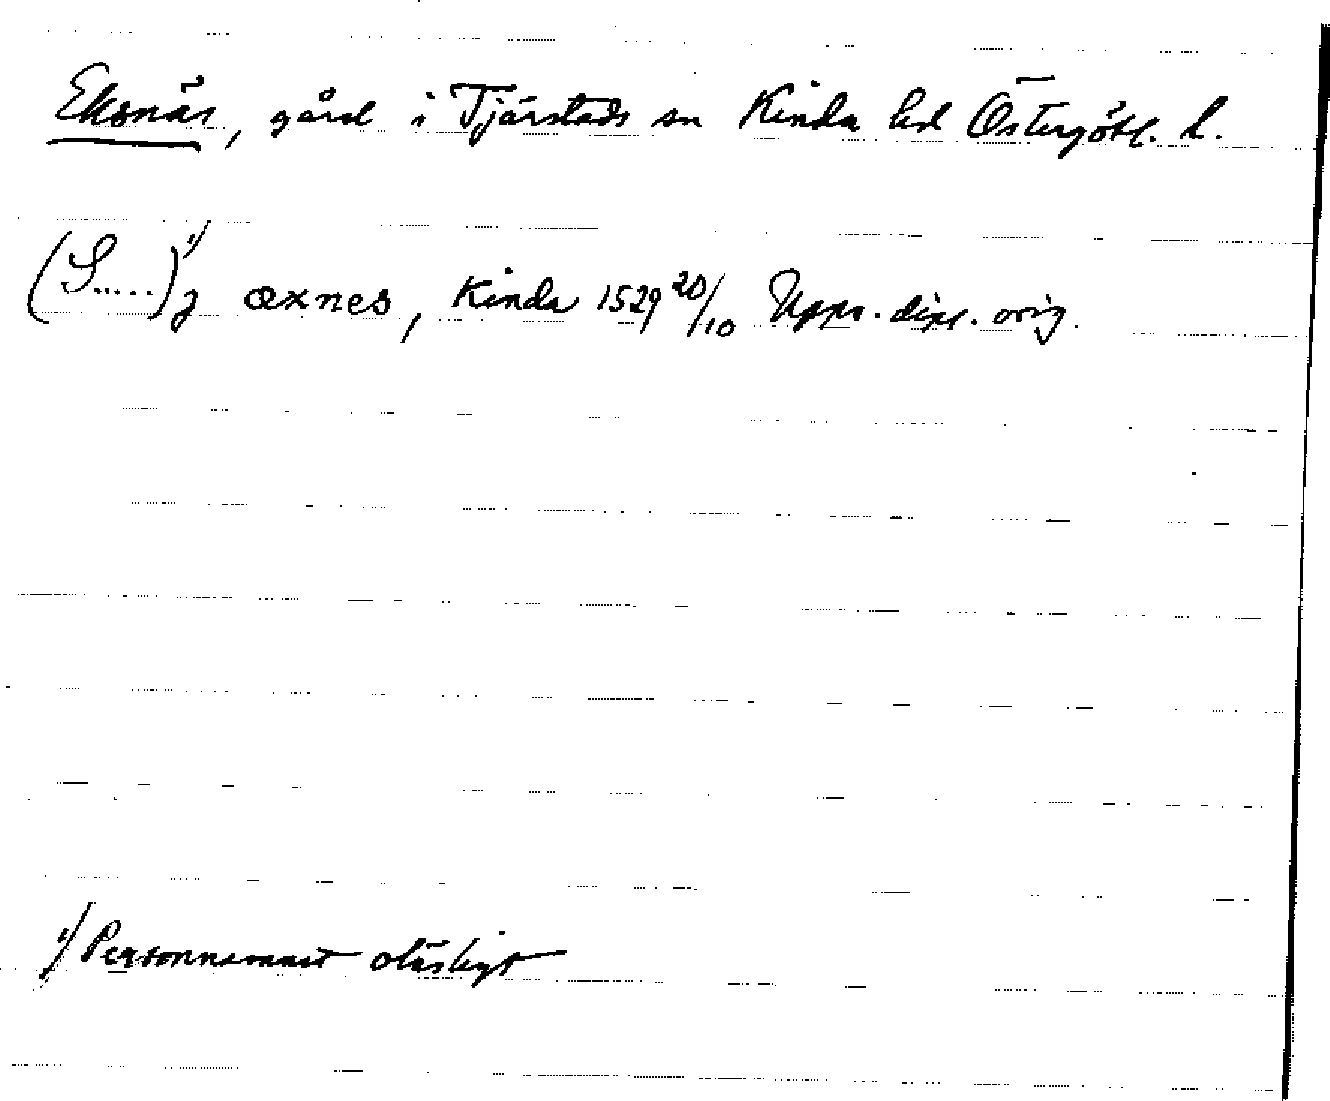 Eksnäs, gård i Tjärstads sn Kinda hd Östergötl. l.
(S.....)¹⁾ j œxnes, Kinda 1529 20/10 Upps. dipl. orig.
1) Personnamnet oläsligt